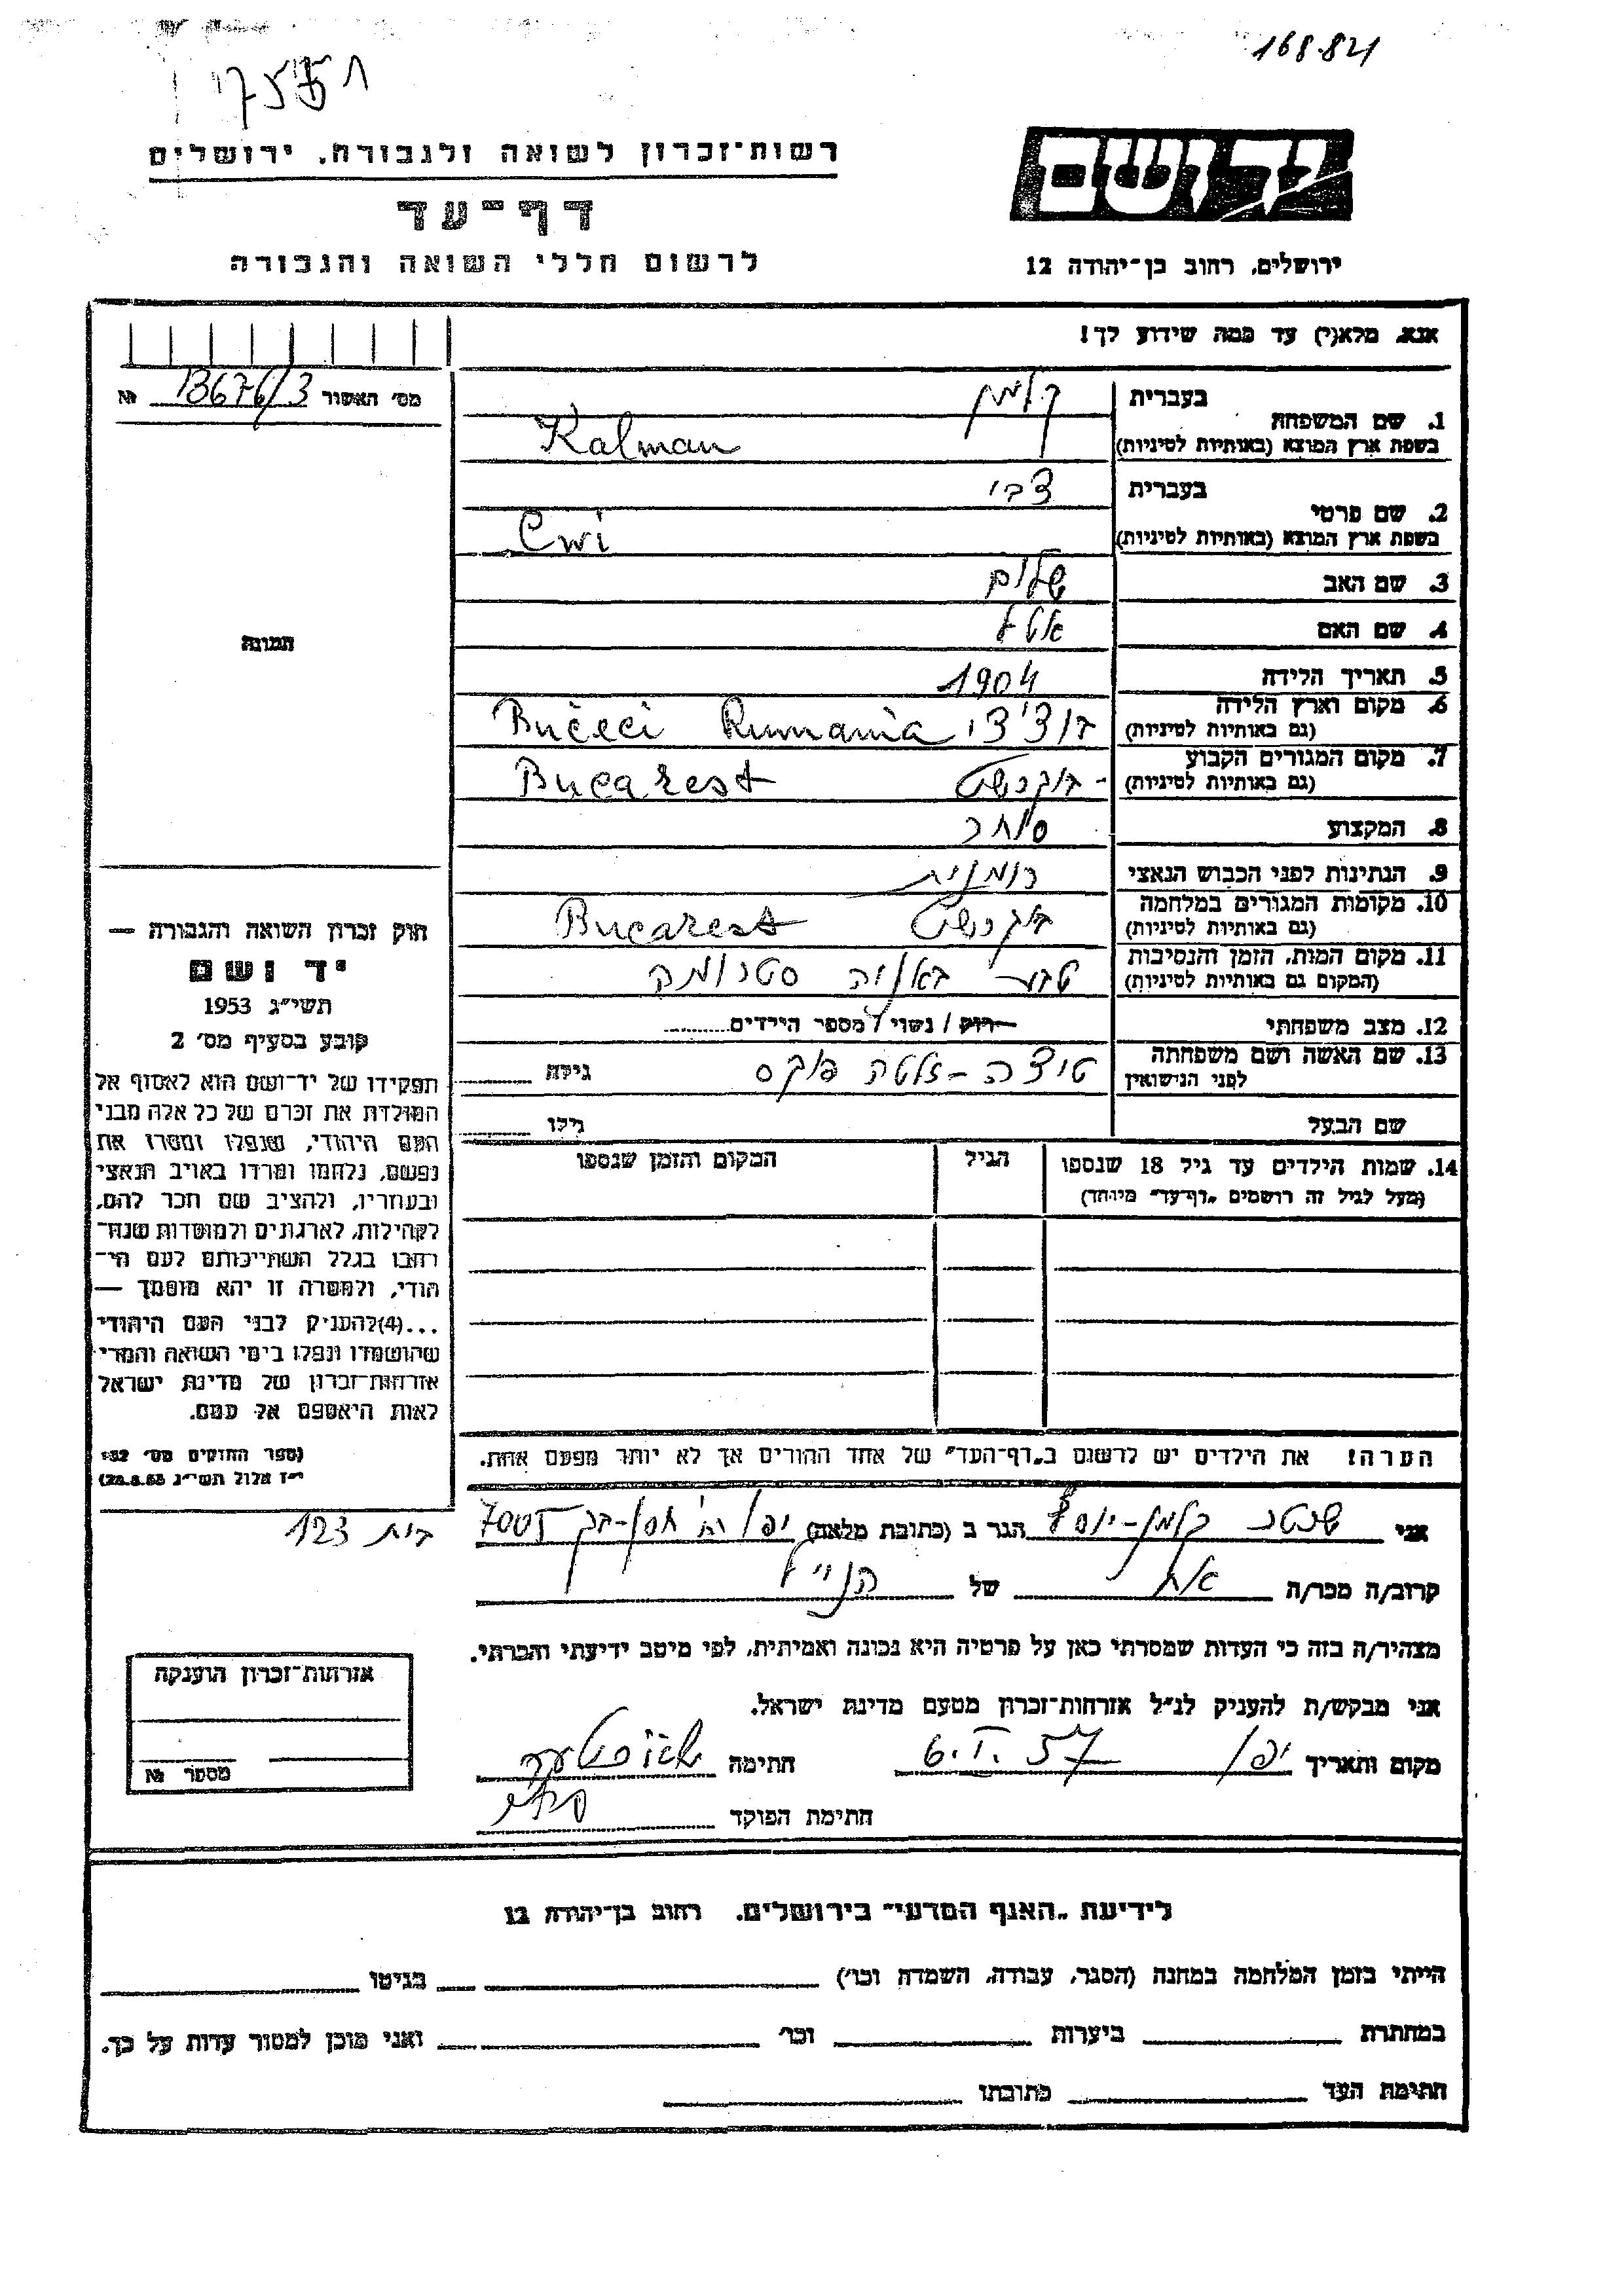 168.821
75561
רשות־זכרון לשואה ולגבורה, ירושלים
יד ושם
דף־עד
לרשום חללי השואה והגבורה
ירושלים, רחוב בן־יהודה 12
אנא, מלא(י) עד כמה שידוע לך!
מס' האשור 13676/3 №
בעברית קלמן
1. שם המשפחה
בשפת ארץ המוצא (באותיות לטיניות) Kalman
בעברית צבי
2. שם פרטי
בשפת ארץ המוצא (באותיות לטיניות) Cwi
3. שם האב שלום
4. שם האם
5. תאריך הלידה 1904
6. מקום וארץ הלידה
(גם באותיות לטיניות) בוצ'צ'י Bučeci Rumania
7. מקום המגורים הקבוע
(גם באותיות לטיניות) בוקרשט Bucarest
8. המקצוע סוחר
9. הנתינות לפני הכבוש הנאצי רומנית
10. מקומות המגורים במלחמה
(גם באותיות לטיניות) בוקרשט Bucarest
11. מקום המות, הזמן והנסיבות
(המקום גם באותיות לטיניות) טבע באניה סטרומה
12. מצב משפחתי רווק / נשוי / מספר הילדים
13. שם האשה ושם משפחתה
לפני הנישואין טוצה - זלטה פוקס גילה
שם הבעל גילו
14. שמות הילדים עד גיל 18 שנספו הגיל המקום והזמן שנספו
(מעל לגיל זה רושמים „דף־עד" מיוחד)
הערה! את הילדים יש לרשום ב„דף־העד" של אחד ההורים אך לא יותר מפעם אחת.
תמונה
חוק זכרון השואה והגבורה —
יד ושם
תשי"ג 1953
קובע בסעיף מס' 2
תפקידו של יד־ושם הוא לאסוף אל
המולדת את זכרם של כל אלה מבני
העם היהודי, שנפלו ומסרו את
נפשם, נלחמו ומרדו באויב הנאצי
ובעוזריו, ולהציב שם וזכר להם,
לקהילות, לארגונים ולמוסדות שנח־
רבו בגלל השתייכותם לעם הי־
הודי, ולמטרה זו יהא מוסמך —
...(4)להעניק לבני העם היהודי
שהושמדו ונפלו בימי השואה והמרי
אזרחות־זכרון של מדינת ישראל
לאות היאספם אל עמם.
(ספר החוקים מס' 132
י"ז אלול תשי"ג 28.8.53)
אני קלמן־יוסף הגר ב (כתובת מלאה) יפו
בית 123
קרוב/ה מכר/ה אח של הנ"ל
מצהיר/ה בזה כי העדות שמסרתי כאן על פרטיה היא נכונה ואמיתית, לפי מיטב ידיעתי והכרתי.
אני מבקש/ת להעניק לנ"ל אזרחות־זכרון מטעם מדינת ישראל.
מקום ותאריך יפו 6.I.57 חתימה
חתימת הפוקד
אזרחות־זכרון הוענקה
מספר №
לידיעת „האגף המדעי" בירושלים, רחוב בן־יהודה 12
הייתי בזמן המלחמה במחנה (הסגר, עבודה, השמדה וכו') בגיטו
במחתרת ביערות וכו' ואני מוכן למסור עדות על כך.
חתימת העד כתובתו